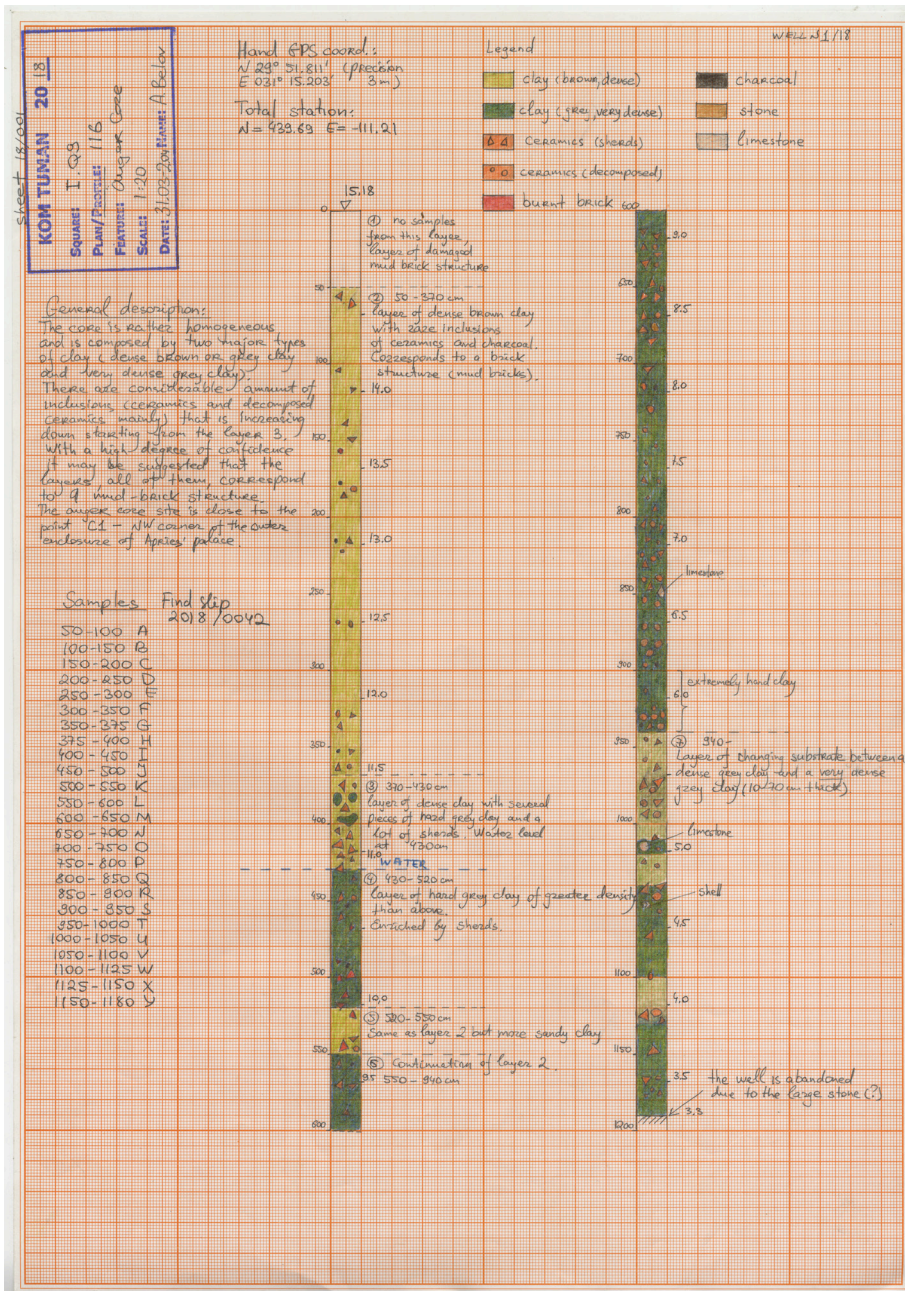 WELL N1/18
sheet 18/001
KOM TUMAN 2018
SQUARE: I.Q9
PLAN/PROFILE: 116
FEATURE: Auger Core
SCALE: 1:20
DATE: 31.03.201 NAME: A.Belov
Hand GPS coord.:
N 29° 51.811' (precision
E 031° 15.203' 3m)
Total station:
N = 439.69 E = -111.21
Legend
clay (brown, dense)
clay (grey, very dense)
ceramics (sherds)
ceramics (decomposed)
burnt brick
charcoal
stone
limestone
General description:
The core is rather homogeneous
and is composed by two major types
of clay (dense brown or grey clay
and very dense grey clay).
There are considerable amount of
inclusions (ceramics and decomposed
ceramics mainly) that is increasing
down starting from the layer 3.
With a high degree of confidence
it may be suggested that the
layers, all of them, correspond
to a mud-brick structure.
The auger core site is close to the
point C1 - NW corner of the outer
enclosure of Apries' palace.
Samples Find slip
2018/0042
50-100 A
100-150 B
150-200 C
200-250 D
250-300 E
300-350 F
350-375 G
375-400 H
400-450 I
450-500 J
500-550 K
550-600 L
600-650 M
650-700 N
700-750 O
750-800 P
800-850 Q
850-900 R
900-950 S
950-1000 T
1000-1050 U
1050-1100 V
1100-1125 W
1125-1150 X
1150-1180 Y
15,18
0
50
100
150
200
250
300
350
400
450
500
550
600
14.0
13,5
13.0
12,5
12.0
11,5
11.0
10,0
9.5
① no samples
from this layer,
layer of damaged
mud brick structure
② 50-370 cm
layer of dense brown clay
with rare inclusions
of ceramics and charcoal.
Corresponds to a brick
structure (mud bricks).
③ 370-430 cm
layer of dense clay with several
pieces of hard grey clay and a
lot of sherds. Water level
at 430cm
WATER
④ 430-520 cm
layer of hard grey clay of greater density
than above.
Enriched by sherds.
⑤ 520-550 cm
Same as layer 2 but more sandy clay
⑥ Continuation of layer 2.
550-940 cm
600
650
700
750
800
850
900
950
1000
1100
1150
1200
9,0
8.5
8.0
7.5
7.0
6.5
6.0
5.0
4.5
4.0
3.5
3.3
limestone
extremely hard clay
⑦ 940-
Layer of changing substrate between a
dense grey clay and a very dense
grey clay (10-70 cm thick)
limestone
shell
the well is abandoned
due to the large stone (?)